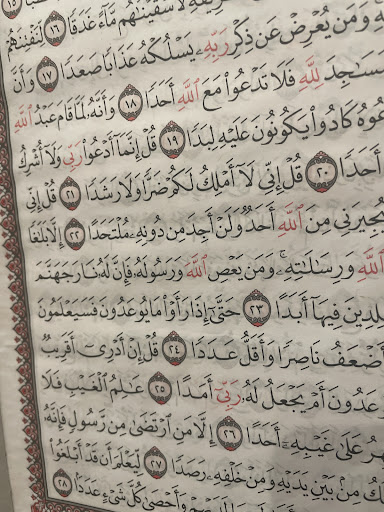 لَأَسْقَيْنَٰهُم مَّآءً غَدَقًا ١٦ لِّنَفْتِنَهُمْ
وَمَن يُعْرِضْ عَن ذِكْرِ رَبِّهِۦ يَسْلُكْهُ عَذَابًا صَعَدًا ١٧ وَأَنَّ
لِلَّهِ فَلَا تَدْعُوا۟ مَعَ ٱللَّهِ أَحَدًا ١٨ وَأَنَّهُۥ لَمَّا قَامَ عَبْدُ ٱللَّهِ
كَادُوا۟ يَكُونُونَ عَلَيْهِ لِبَدًا ١٩ قُلْ إِنَّمَآ أَدْعُوا۟ رَبِّى وَلَآ أُشْرِكُ
أَحَدًا ٢٠ قُلْ إِنِّى لَآ أَمْلِكُ لَكُمْ ضَرًّا وَلَا رَشَدًا ٢١ قُلْ إِنِّى
يُجِيرَنِى مِنَ ٱللَّهِ أَحَدٌ وَلَنْ أَجِدَ مِن دُونِهِۦ مُلْتَحَدًا ٢٢ إِلَّا بَلَٰغًا
ٱللَّهِ وَرِسَٰلَٰتِهِۦ ۚ وَمَن يَعْصِ ٱللَّهَ وَرَسُولَهُۥ فَإِنَّ لَهُۥ نَارَ جَهَنَّمَ
فِيهَآ أَبَدًا ٢٣ حَتَّىٰٓ إِذَا رَأَوْا۟ مَا يُوعَدُونَ فَسَيَعْلَمُونَ
أَضْعَفُ نَاصِرًا وَأَقَلُّ عَدَدًا ٢٤ قُلْ إِنْ أَدْرِىٓ أَقَرِيبٌ
أَمْ يَجْعَلُ لَهُۥ رَبِّىٓ أَمَدًا ٢٥ عَٰلِمُ ٱلْغَيْبِ فَلَا
عَلَىٰ غَيْبِهِۦٓ أَحَدًا ٢٦ إِلَّا مَنِ ٱرْتَضَىٰ مِن رَّسُولٍ فَإِنَّهُۥ
مِنۢ بَيْنِ يَدَيْهِ وَمِنْ خَلْفِهِۦ رَصَدًا ٢٧ لِّيَعْلَمَ أَن قَدْ أَبْلَغُوا۟
وَأَحْصَىٰ كُلَّ شَىْءٍ عَدَدًۢا ٢٨